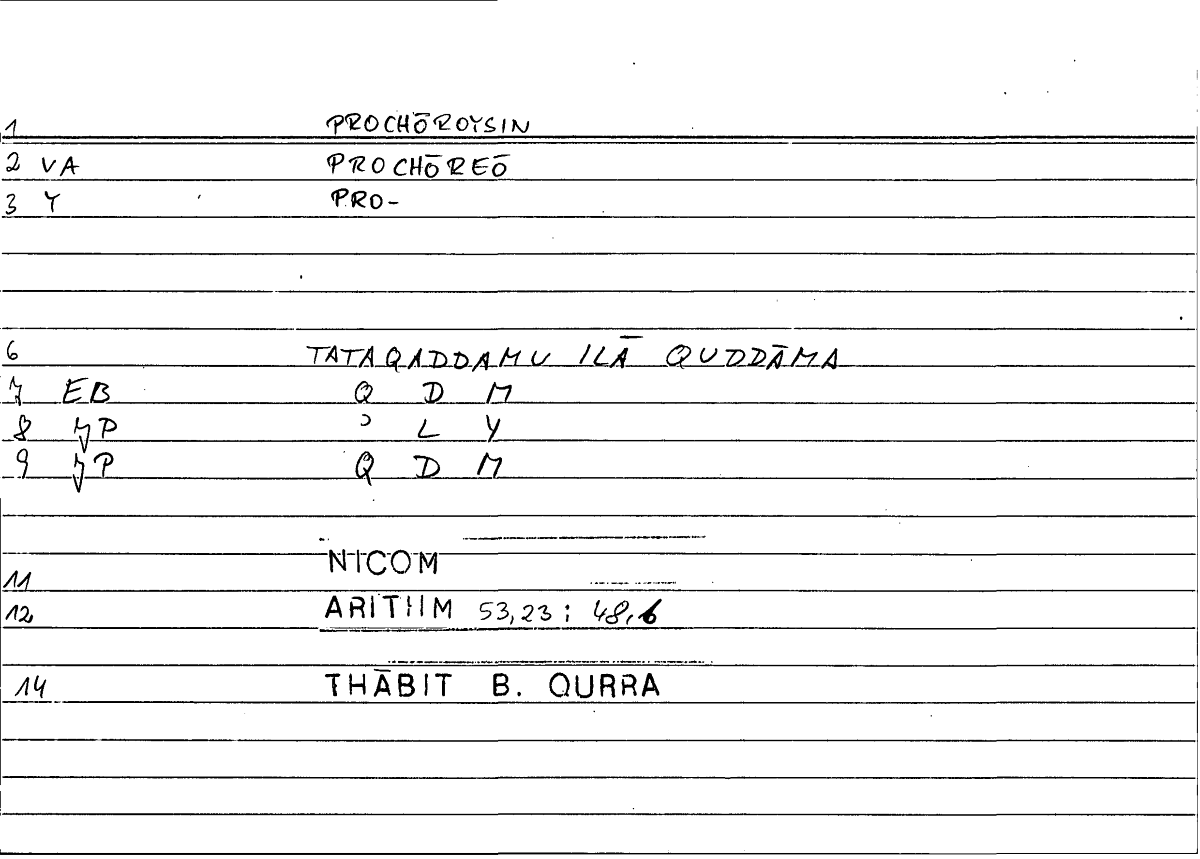 1 PROCHŌROYSIN
2 VA PROCHŌREŌ
3 Y PRO-
6 TATAQADDAMU ILĀ QUDDĀMA
7 EB Q D M
8 P ʾ L Y
9 P Q D M
NICOM
11
12 ARITHM 53,23 ; 48,6
14 THĀBIT B. QURRA